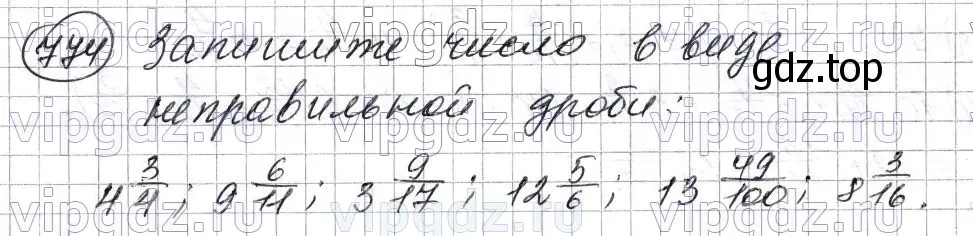 774 Запишите число в виде
gdz.top
неправильной дроби:
4 3/4; 9 6/11; 3 9/17; 12 5/6; 13 49/100; 8 3/16.
vipgdz.ru vipgdz.ru vipgdz.ru